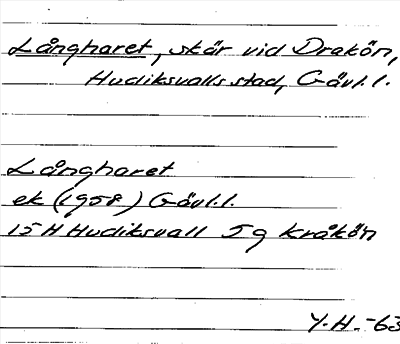 Långharet, skär vid Drakön,
Hudiksvalls stad, Gävl.l.
Långharet
ek (1958) Gävl.l.
15H Hudiksvall 5g Kråkön
Y.H. -63